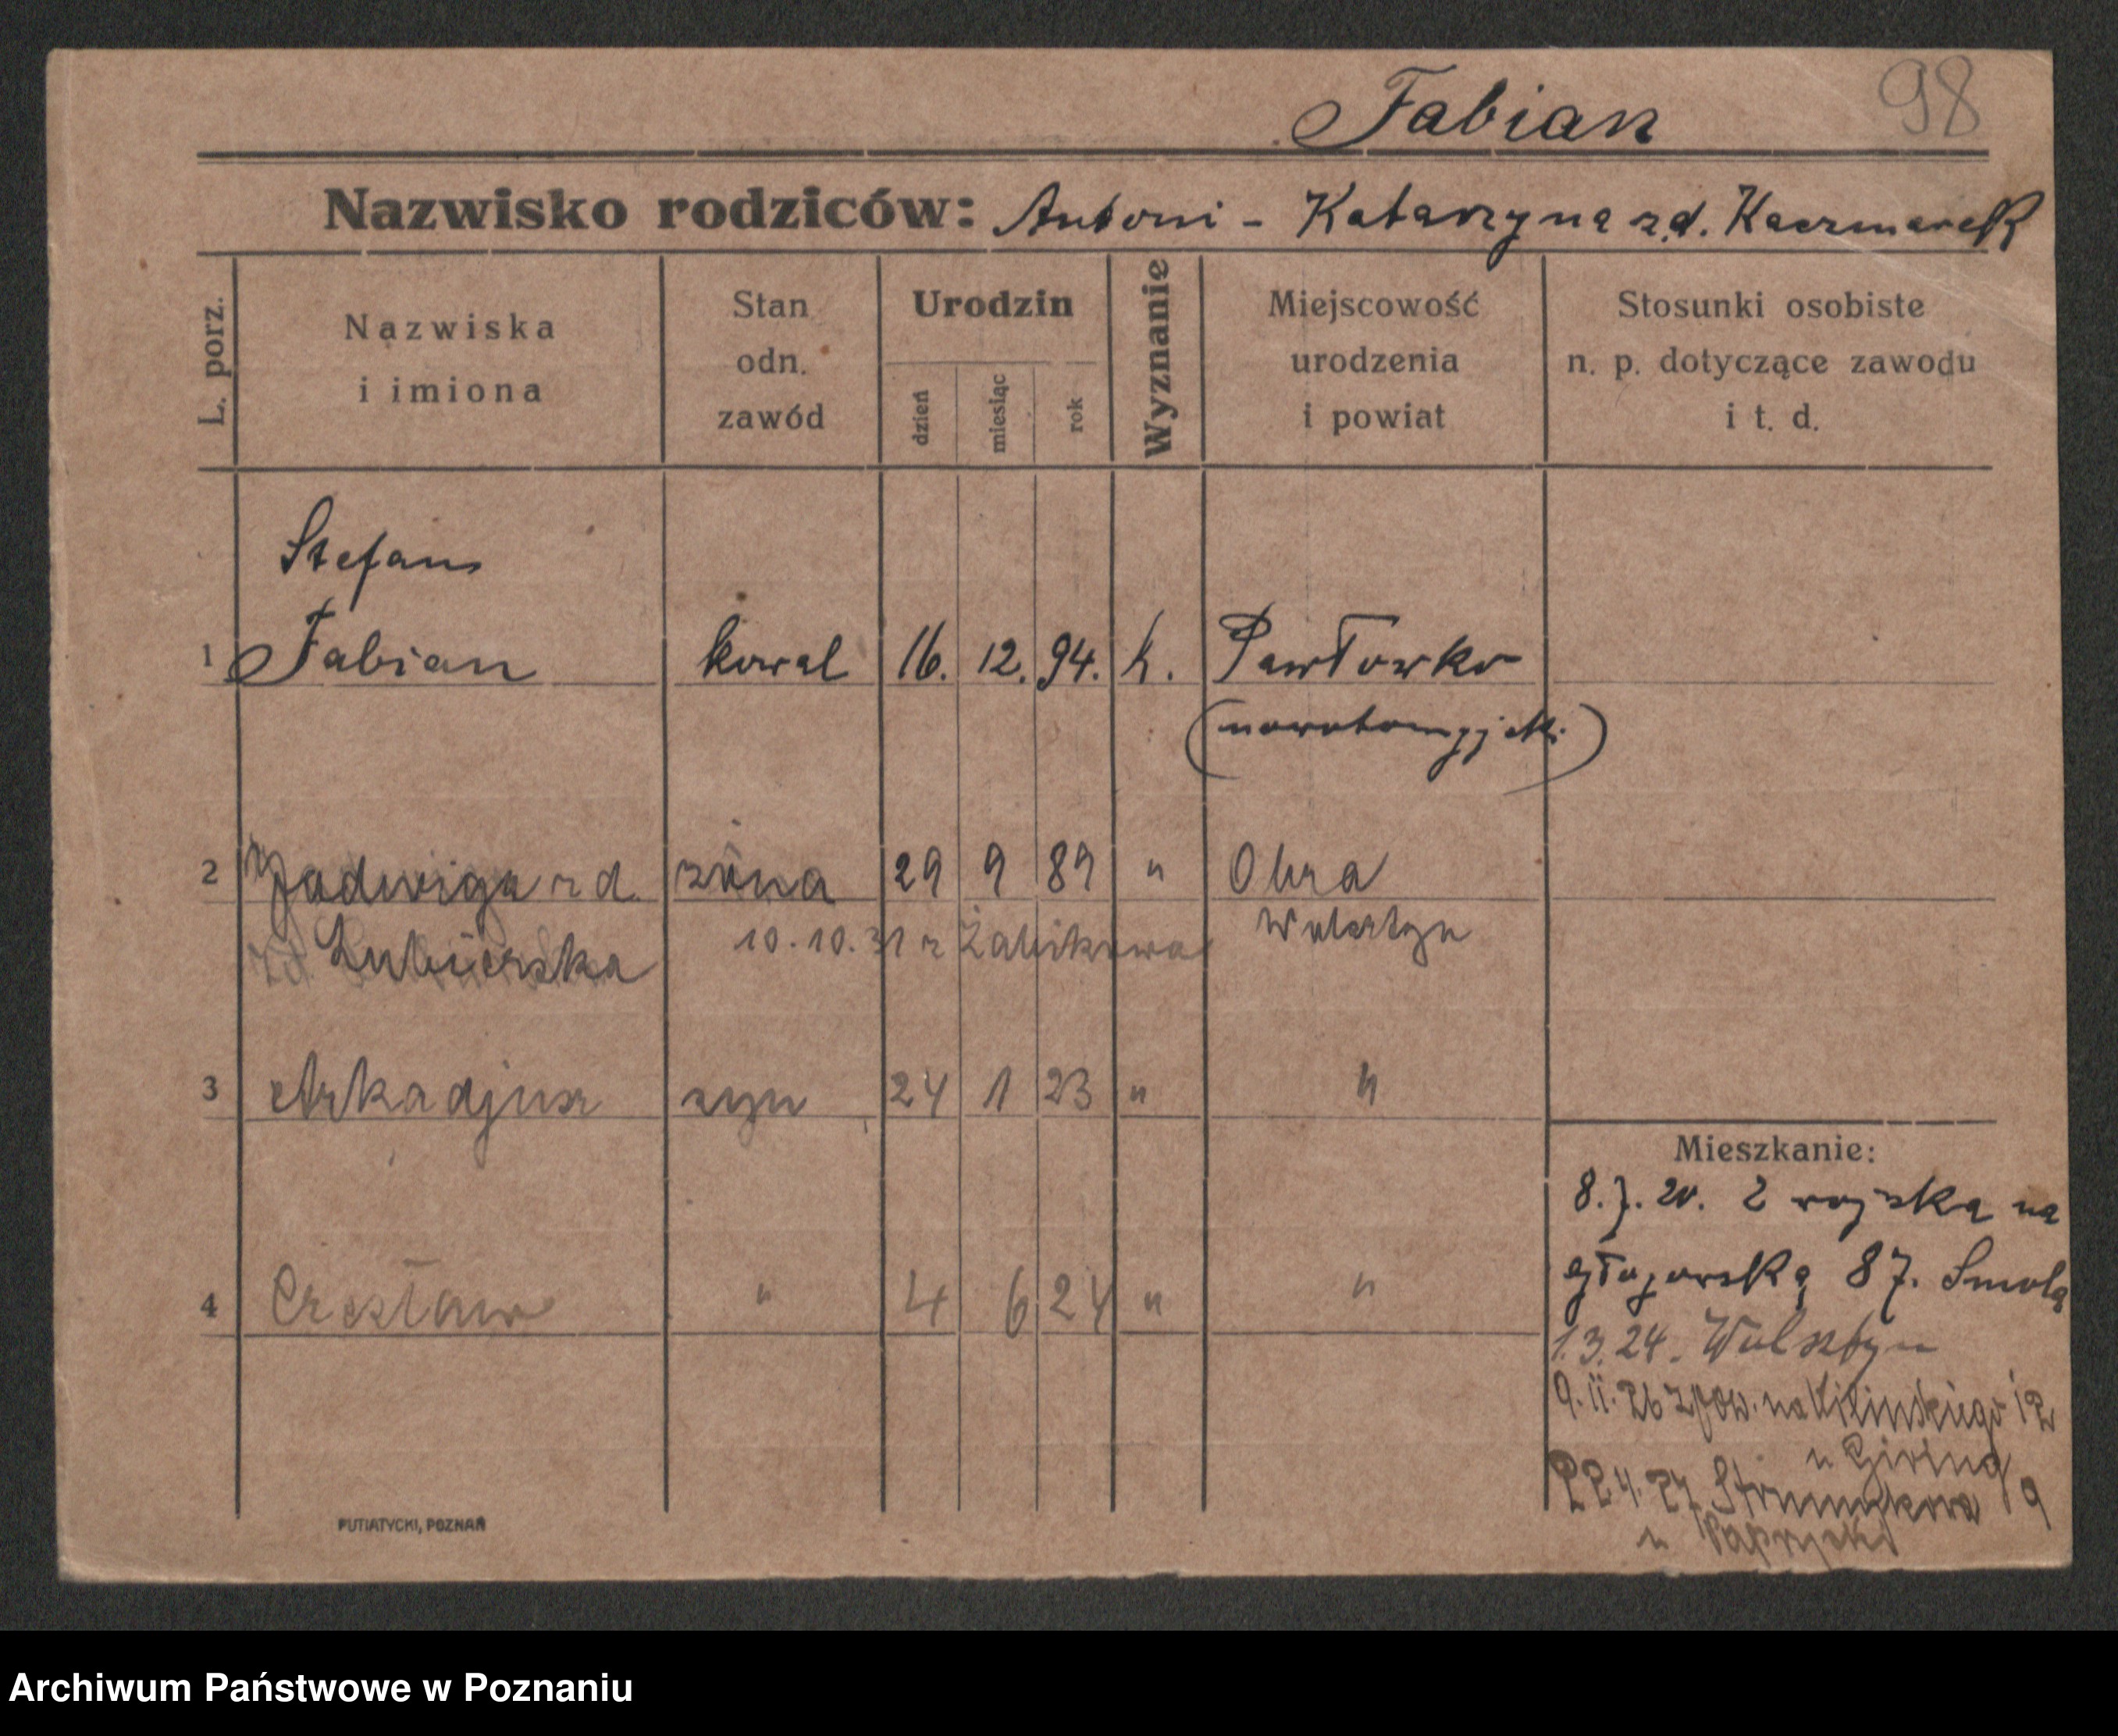 Fabian 98
Nazwisko rodziców: Antoni - Katarzyna z d. Kaczmarek
L. porz.
Nazwiska i imiona
Stan odn. zawód
Urodzin
dzień miesiąc rok
Wyznanie
Miejscowość urodzenia i powiat
Stosunki osobiste n. p. dotyczące zawodu i t. d.
Stefan
1 Fabian kowal 16. 12. 94. k. Pawłowko
(nowotomyjski)
2 Jadwiga z d. żona 29 9 89 " Obra
Lubierska 10.10.31 z Żabikowa Wolsztyn
3 Arkadjusz syn 24 1 23 " "
Mieszkanie:
8.7.20. Z wojska na
4 Czesław " 4 6 24 " "
głogowską 87. Smolą
1.3.24. Wolsztyn
9.11.26 z pow. na Kilinskiego 12
u
22.4.27 Strumykowa 9
u
PUTIATYCKI, POZNAŃ
Archiwum Państwowe w Poznaniu